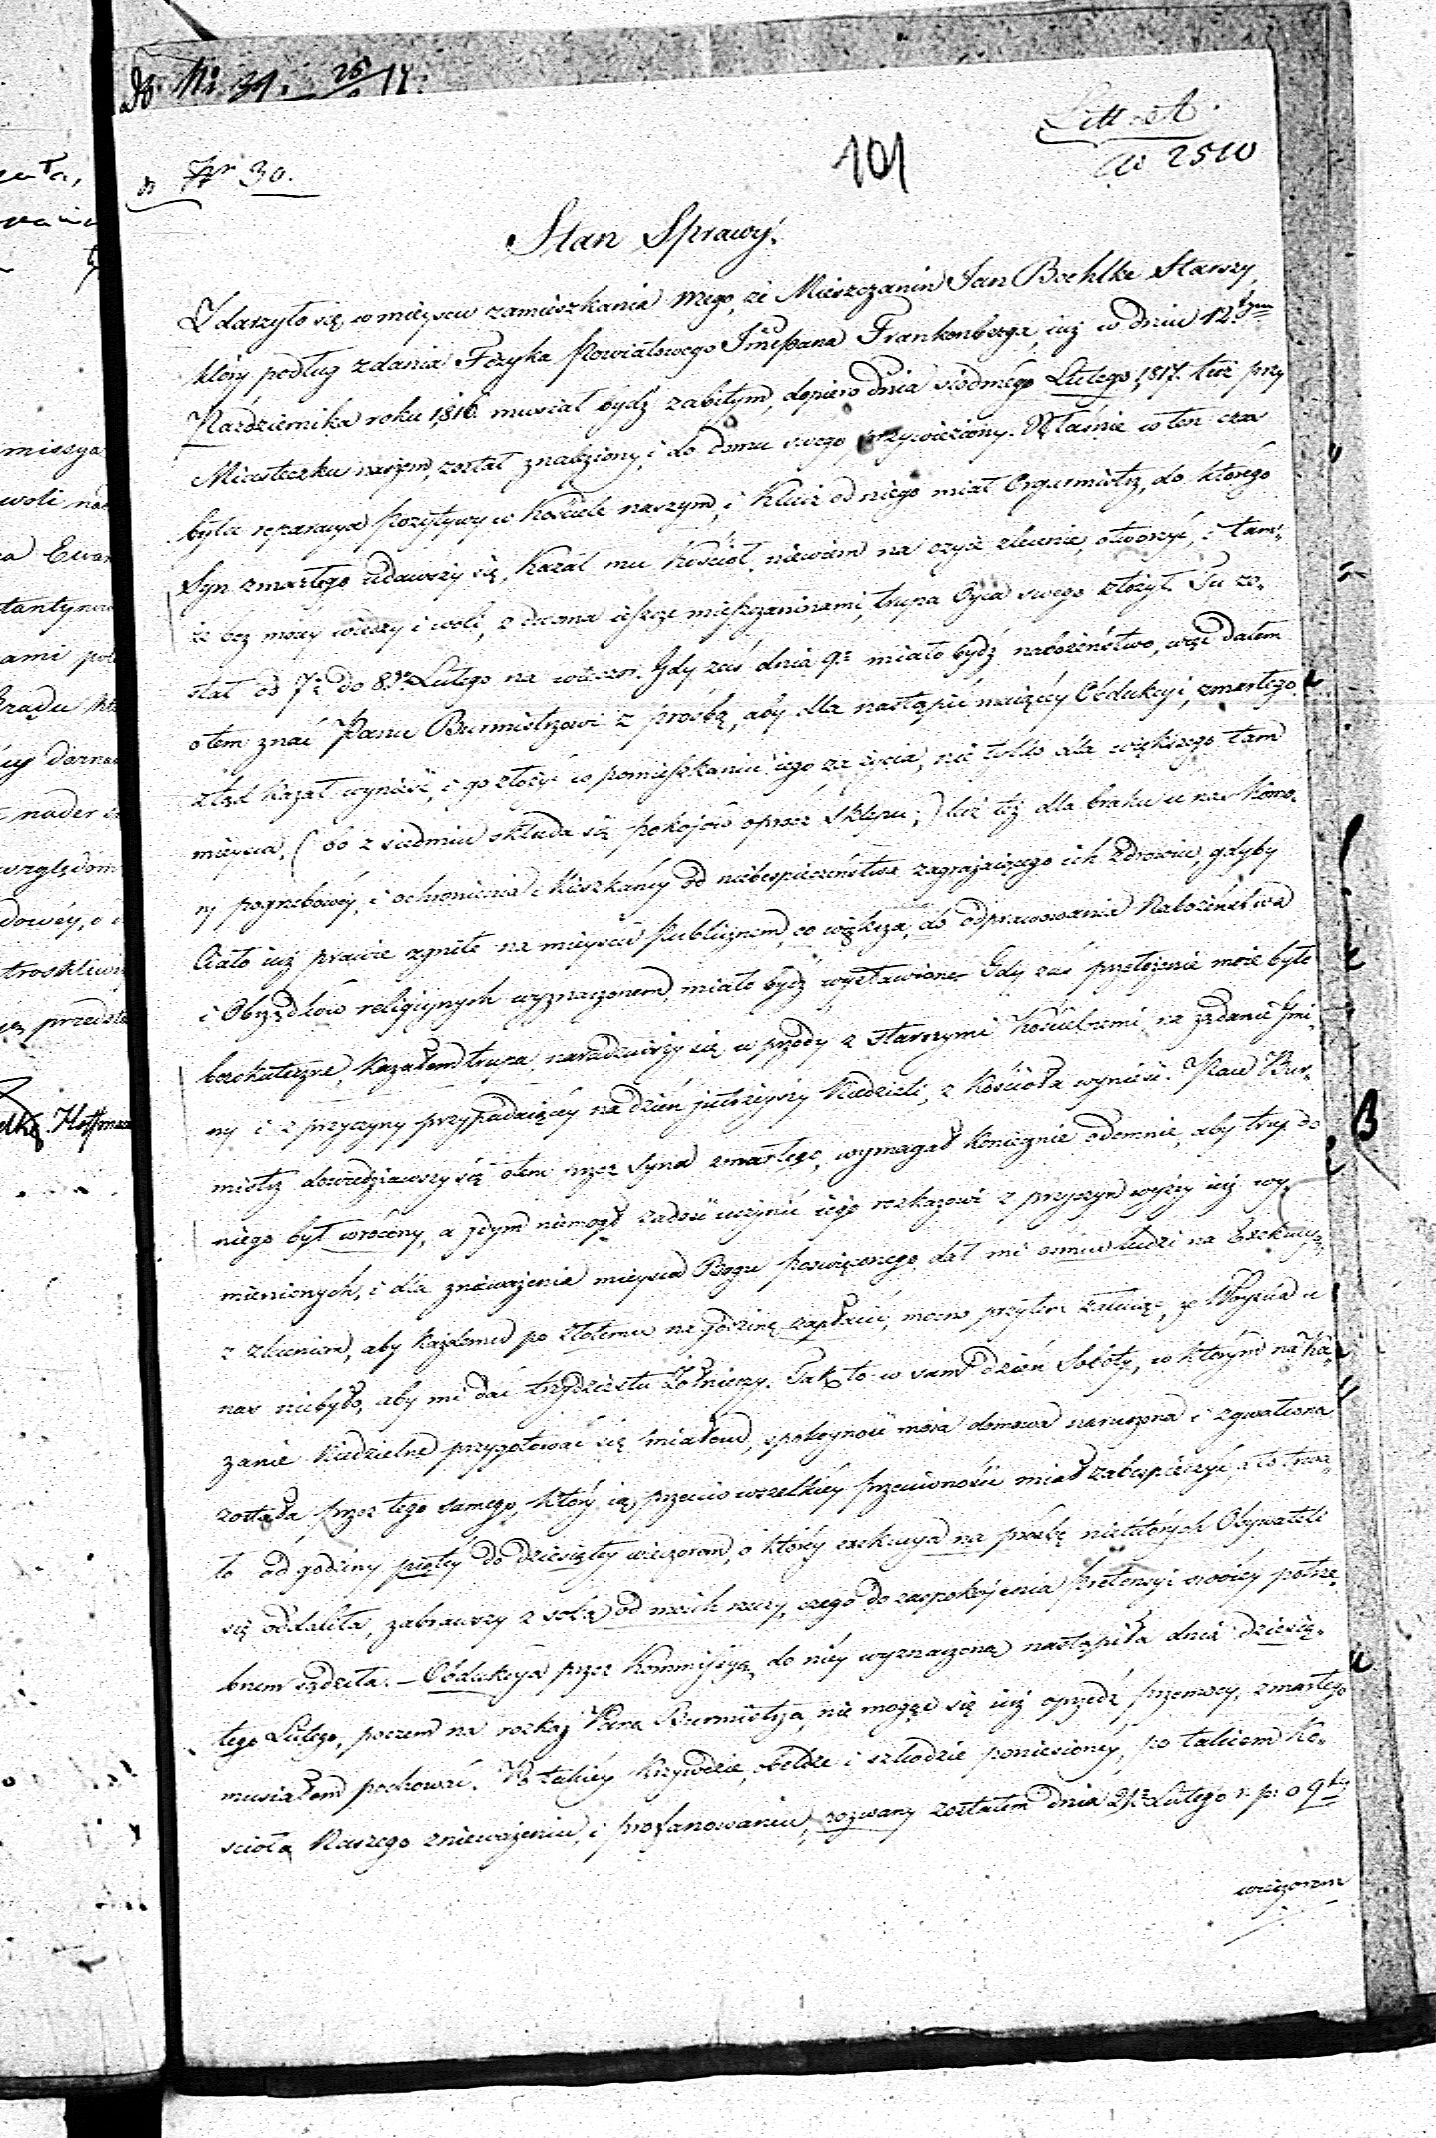 do Nr 30.
101
Litt. A.
ad 2510
Stan Sprawy.
Zdarzyło się w mieyscu zamieszkania mego, że Mieszczanin Jan Boehlke Starszy,
który podług zdania Fizyka Powiatowego JmćPana Frankenberga, iuż w dniu 12tym
Października roku 1816. musiał bydź zabitym, dopiero dnia siódmego Lutego 1817. tuż przy
Miasteczku naszem, został znaleziony, i do domu swego przywieziony. Właśnie w ten czas
była reparacya Pozytywy w kościele naszym, i Klucz od niego miał Organmistrz, do którego
Syn zmarłego udawszy się, kazał mu Kościół, niewiem na czyie zlecenie, otworzyć, i tam-
że bez móiey wiedzy i woli, z dwoma ieszcze mieszczaninami, trupa Oyca swego złożył. Tu zo-
stał od 7º do 8º Lutego na wieczor. Gdy zaś dnia 9º miało bydź nabożeństwo, więc dałem
o tem znać Panu Burmistrzowi z prosbą, aby dla nastąpić maiącéy Obdukcyi, zmarłego
ztąd kazał wynieść, i go złożyć w pomieszkaniu iego za życia, nie tylko dla większego tam
mieysca, (bo z siedmiu składa się pokojów oprócz sklepu;) lecz też dla braku u nas Komo-
ry pogrzebowéy, i ochronienia Mieszkańcy od niebespieczeństwa zagrażaiącego ich zdrowiu, gdyby
Ciało iuż prawie zgniłe na mieyscu Publicznem, co większa, do odprawowania Nabożeństwa
i Obrządków religiynych wyznaczonem, miało bydź wystawione. Gdy zaś przełożenie moie było
bezskuteczne, kazałem trupa, naradziwszy się w przody z starszymi Kościelnemi, na żądanie Gmi-
ny i z przyczyny przypadaiącéy na dzień jutrzeyszy Niedzieli, z Kościoła wynieść. Pan Bur-
mistrz dowiedziawszy się o tem przez Syna zmarłego, wymagał koniecznie odemnie, aby trup do
niego był wrócony, a gdym niemógł zadość uczynić iego rozkazowi z przyczyn wyżey iuż wy-
mienionych, i dla znieważenia mieysca Bogu poswięconego, dał mi osmiu ludzi na Exekucyą,
z zleceniem, aby każdemu po złotemu na godzinę zapłacić, mocno przytem żałuiąc, że Woyska u
nas niebyło, aby mi dać trzydziestu Żołnierzy. Tak to w sam dzień Soboty, w którym na Ka-
zanie Niedzielne przygotować się miałem, spokoyność moia domowa naruszona i zgwałcona
została przez tego samego, który ią przeciw wszelkiéy przeciwności miał zabespieczyć, a to trwa-
ło od godziny piątéy do dziesiątéy wieczorem, o któréy exekucya na prośbę niektórych Obywateli
się oddaliła, zabrawszy z sobą od moich rzeczy, czego do zaspokojenia pretensyi swoiéy potrze-
bnem sądziła. — Obdukcya przez Kommissyą do niéy wyznaczoną nastąpiła dnia dziesią-
tego Lutego, poczem na rozkaz Pana Burmistrza, nie mogąc się iuż oprzedz przemocy, zmarłego
musiałem pochować. Po takiéy krzywdzie, obeldze i szkodzie poniesionéy, po takiem Ko-
scioła Naszego znieważeniu, i profanowaniu, pozwany zostałem dnia 21º Lutego r. p. o 9téy
wieczorem
B